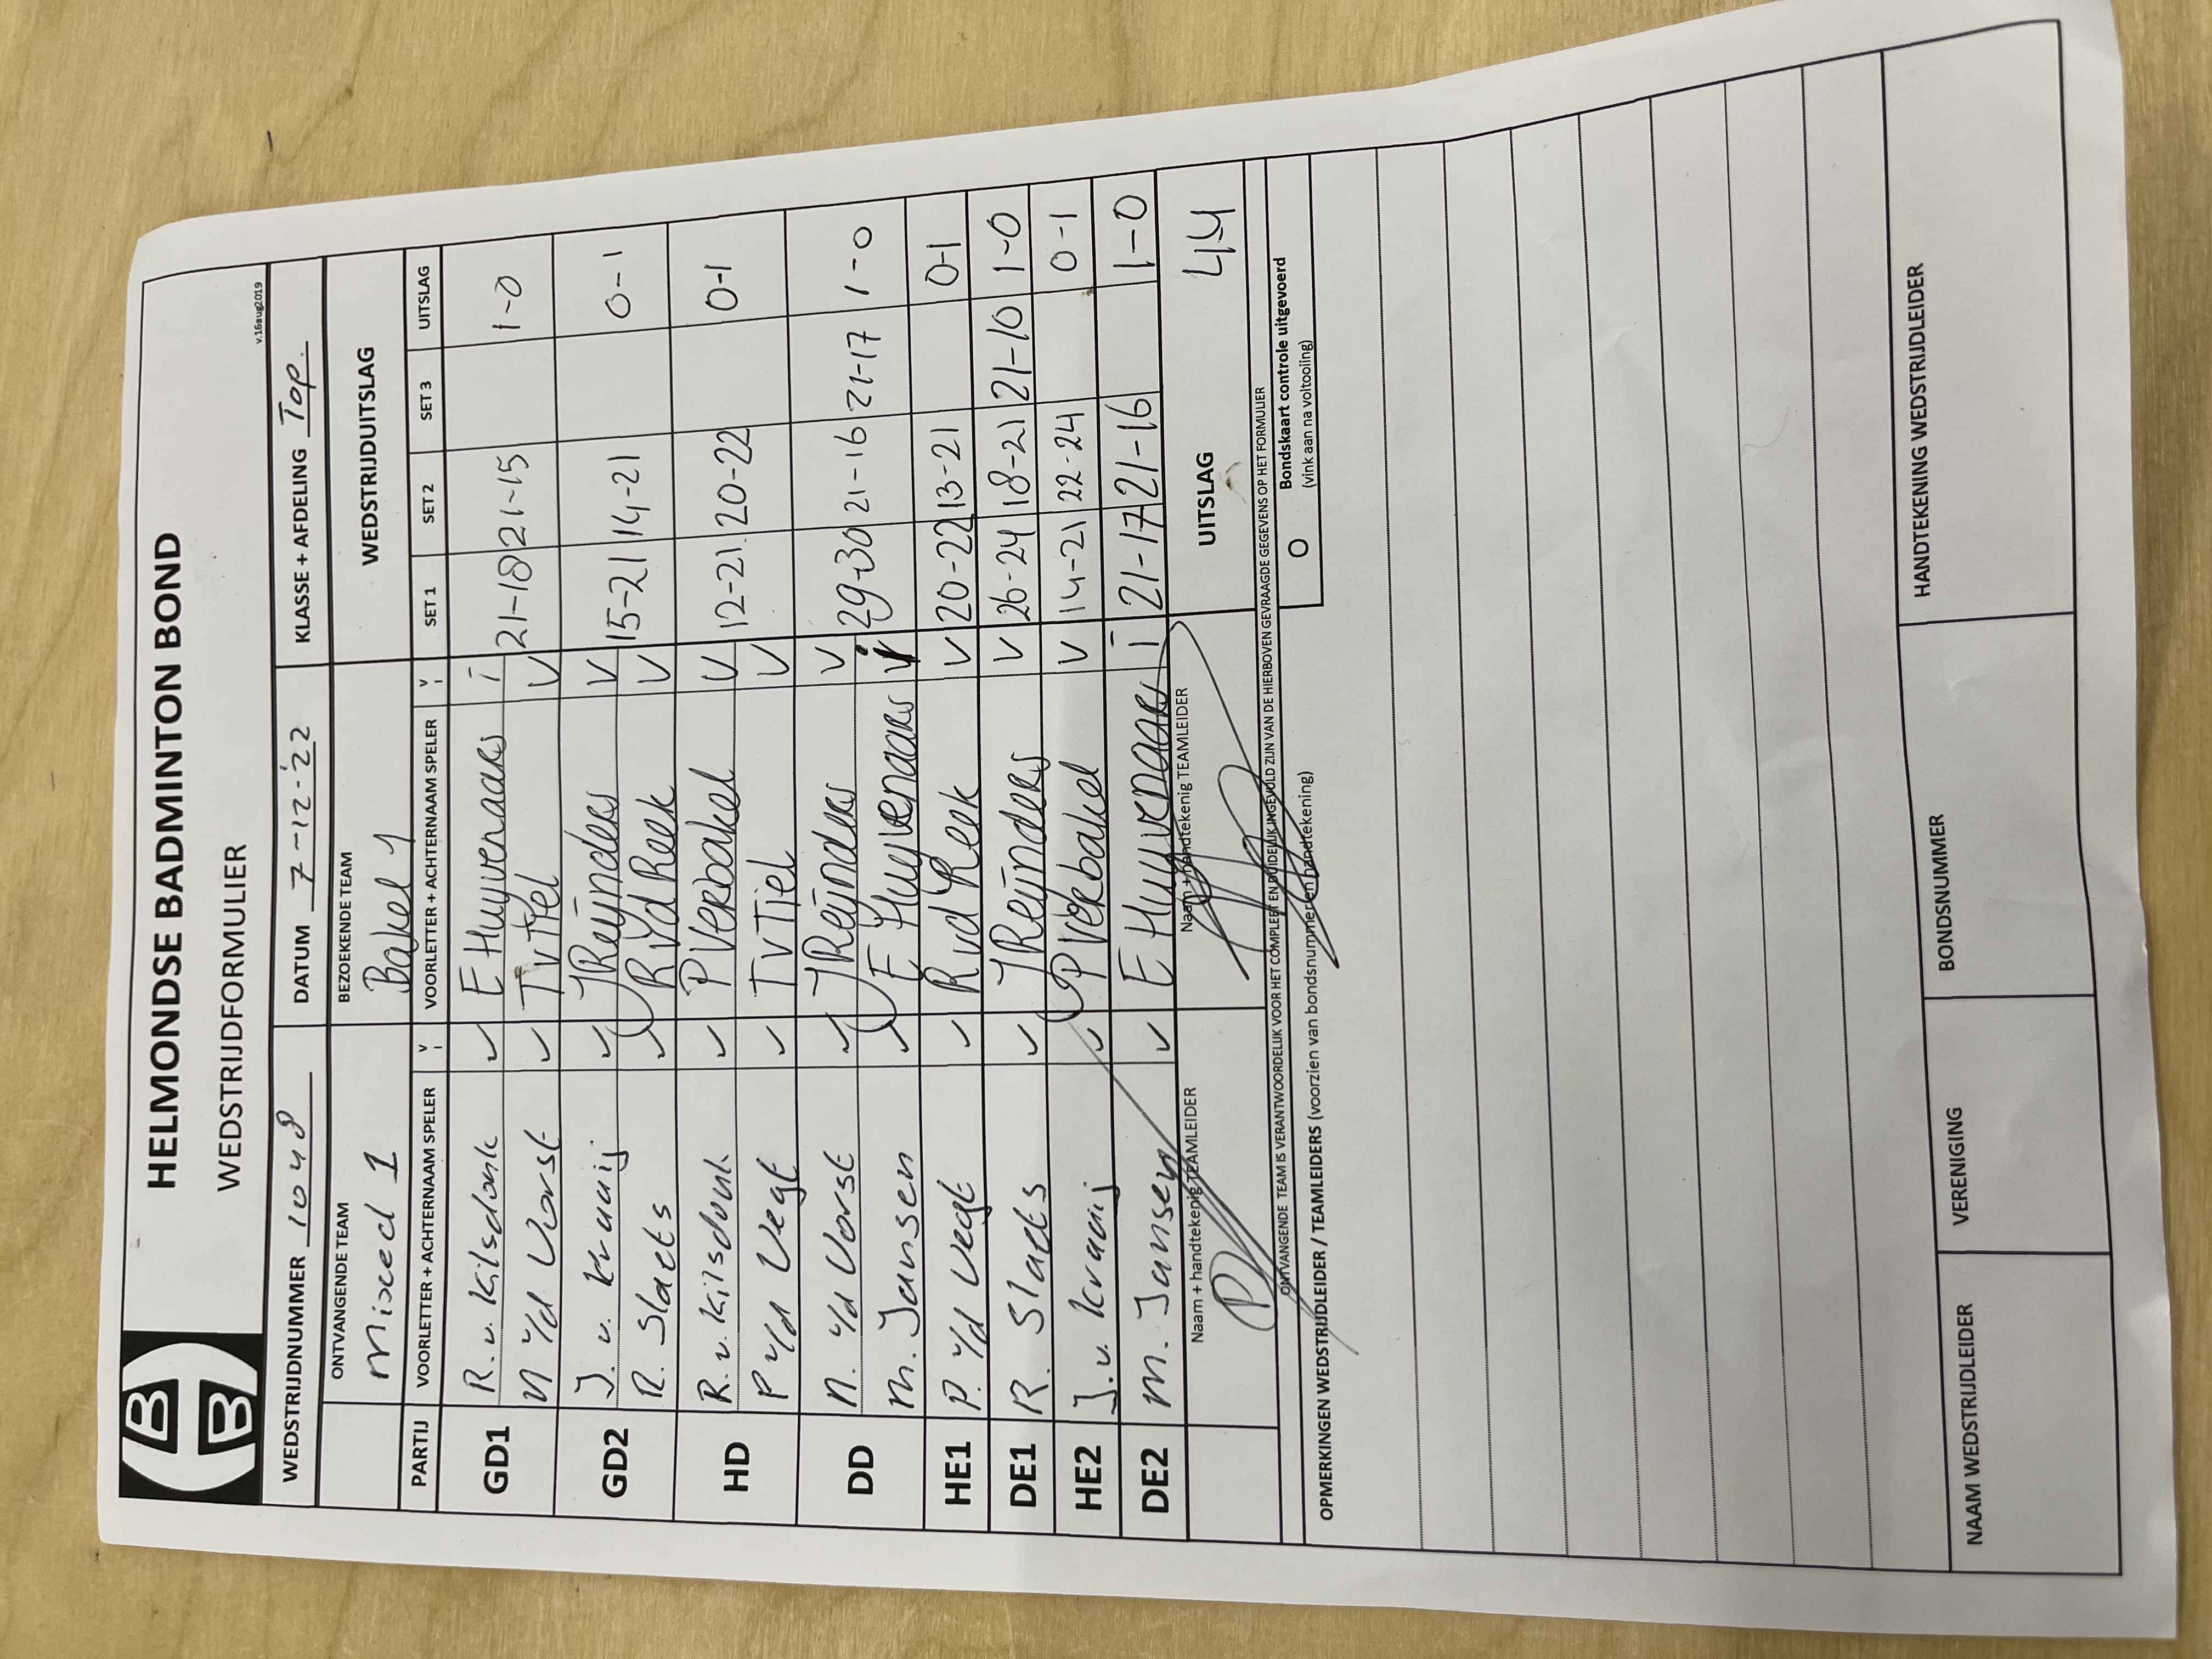 HELMONDSE BADMINTON BOND
WEDSTRIJDFORMULIER
v.16aug2019
WEDSTRIJDNUMMER 1048 DATUM 7-12-'22 KLASSE + AFDELING Top.
ONTVANGENDE TEAM BEZOEKENDE TEAM WEDSTRIJDUITSLAG
mixed 1 Bakel 1
PARTIJ VOORLETTER + ACHTERNAAM SPELER V VOORLETTER + ACHTERNAAM SPELER V SET 1 SET 2 SET 3 UITSLAG
GD1 R. v. Kilsdonk ✓ E Huyvenaars I 21-18 21-15 1-0
N v/d Vorst ✓ T v Tiel V
GD2 J. v. Kraaij ✓ J Reijnders V 15-21 14-21 0-1
R. Slaets ✓ R vd Reek V
HD R. v. Kilsdonk ✓ P Verbakel V 12-21. 20-22 0-1
P v/d Vegt ✓ T v Tiel V
DD N. v/d Vorst ✓ J Reijnders V 29-30 21-16 21-17 1-0
M. Jansen ✓ E Huyvenaars
HE1 P. v/d Vegt ✓ R vd Reek V 20-22 13-21 0-1
DE1 R. Slaets ✓ J Reijnders V 26-24 18-21 21-10 1-0
HE2 J. v. Kraaij ✓ P Verbakel V 14-21 22-24 0-1
DE2 M. Jansen ✓ E Huyvenaars I 21-17 21-16 1-0
Naam + handtekenig TEAMLEIDER Naam + handtekenig TEAMLEIDER UITSLAG 4-4
ONTVANGENDE TEAM IS VERANTWOORDELIJK VOOR HET COMPLEET EN DUIDELIJK INGEVULD ZIJN VAN DE HIERBOVEN GEVRAAGDE GEGEVENS OP HET FORMULIER
OPMERKINGEN WEDSTRIJDLEIDER / TEAMLEIDERS (voorzien van bondsnummer en handtekening)
O Bondskaart controle uitgevoerd
(vink aan na voltooiing)
NAAM WEDSTRIJDLEIDER VERENIGING BONDSNUMMER HANDTEKENING WEDSTRIJDLEIDER